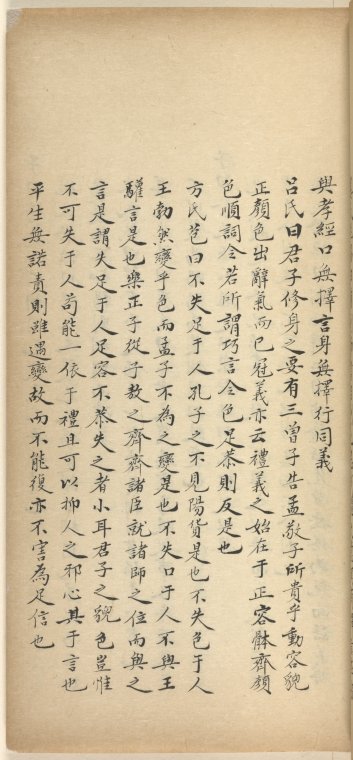 與孝經口無擇言身無擇行同義
呂氏曰君子修身之要有三曾子告孟敬子所貴乎動容貌
正顏色出辭氣而已冠義亦云禮義之始在于正容體齊顏
色順詞令若所謂巧言令色足恭則反是也
方氏苞曰不失足于人孔子之不見陽貨是也不失色于人
王勃然變乎色而孟子不為之變是也不失口于人不與王
驩言是也樂正子從子敖之齊齊諸臣就諸師之位而與之
言是謂失足于人足容不恭失之者小耳君子之貌色豈惟
不可失于人苟能一依于禮且可以抑人之邪心其于言也
平生無諾責則雖遇變故而不能復亦不害為足信也